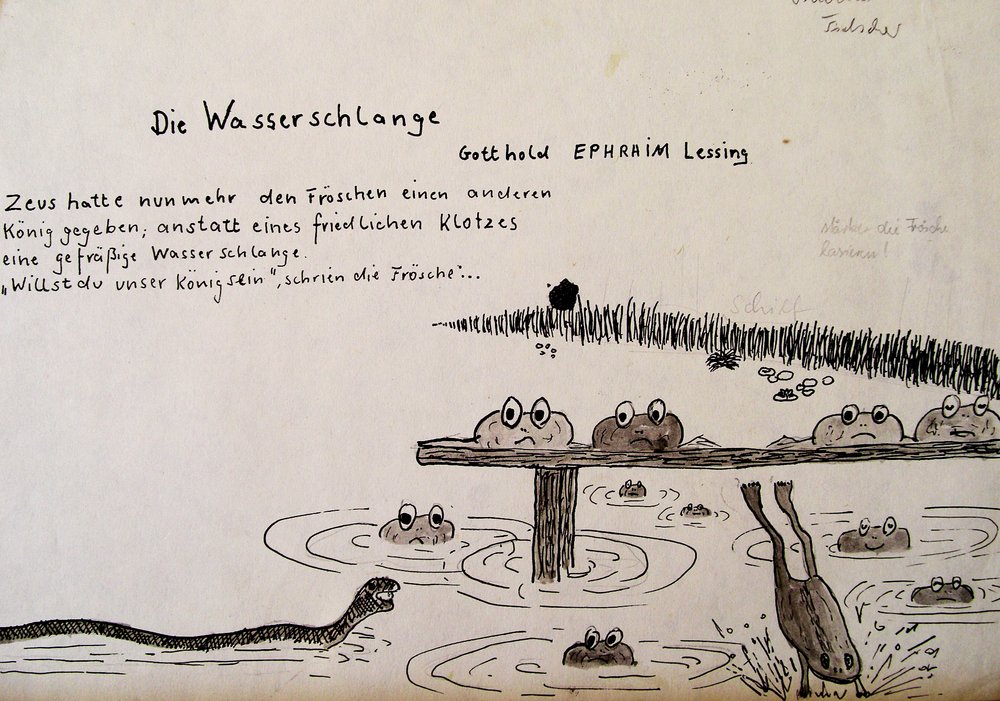 Die Wasserschlange
Gotthold EPHRAIM Lessing
Zeus hatte nunmehr den Fröschen einen anderen
König gegeben; anstatt eines friedlichen Klotzes
eine gefräßige Wasserschlange.
„Willst du unser König sein", schrien die Frösche:...
die Frösche
Schilf